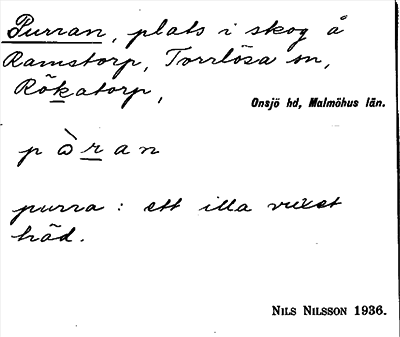 Purran, plats i skog å
Ramstorp, Torrlösa sn,
Rökatorp,
Onsjö hd, Malmöhus län.
purra : ett illa vuxet
träd.
NILS NILSSON 1936.